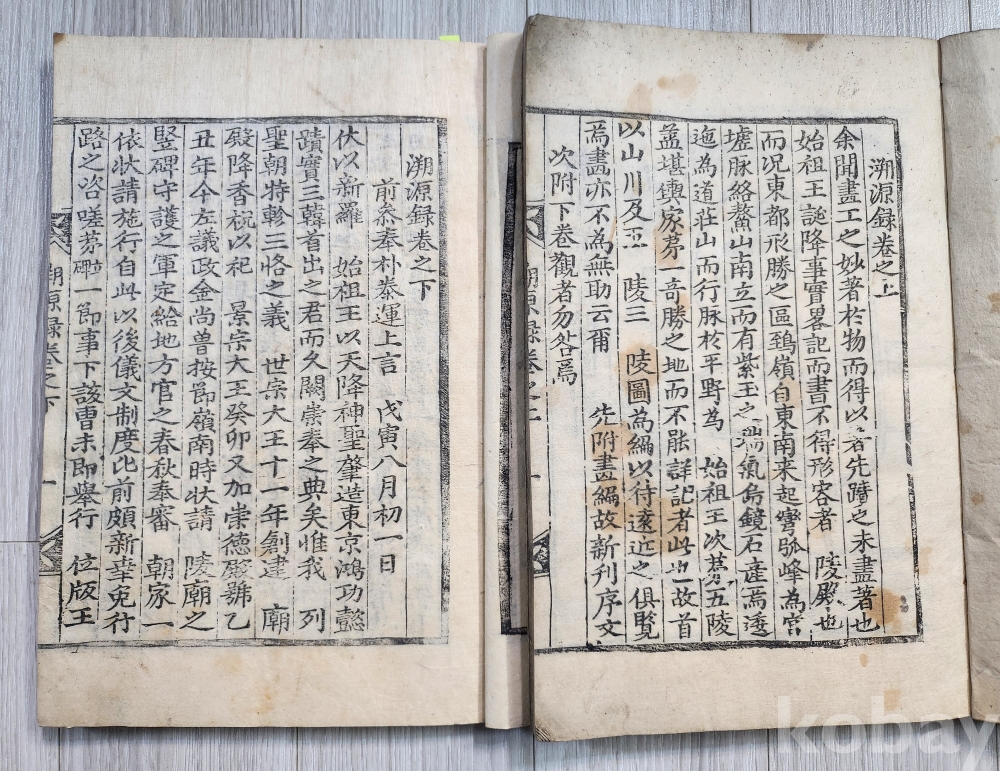 溯源録卷之上
余聞畫工之妙著於物而得以著先蹟之未盡著也
始祖王誕降事實畧記而書不得形容者 陵殿也
而况東都形勝之區鵄嶺自東南来起彎弧峰為宮
墟脉絡鰲山南立而有紫王之端氣烏鏡石産焉逶
迤為道莊山而行脉於平野為 始祖王次苐五陵
盖堪輿家苐一奇勝之地而不能詳記者此也故首
以山川及五 陵三 陵圖為編以待遠近之俱覽
為畫亦不為無助云爾 先附畫編故新刊序文
次附下卷觀者勿咎焉
溯源録卷之上
溯源録卷之下
前叅奉朴泰運上言 戊寅八月初一日
伏以新羅 始祖王以天降神聖肇造東京鴻功懿
蹟實三韓首出之君而久闕崇奉之典矣惟我 列
聖朝特軫三恪之義 世宗大王十一年創建 廟
殿降香祝以祀 景宗大王癸卯又加崇德殿號乙
丑年今左議政金尚魯按節嶺南時狀請 陵廟之
竪碑守護之軍定給地方官之春秋奉審 朝家一
依狀請施行自此以後儀文制度比前頗新幸免行
路之咨嗟苐碑一節事下該曹未即舉行 位版王
溯源録卷之下
一
kobay